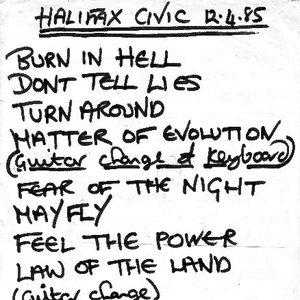 HALIFAX CIVIC 12.4.85
BURN IN HELL
DONT TELL LIES
TURN AROUND
MATTER OF EVOLUTION
(Guitar change & Keyboard)
FEAR OF THE NIGHT
MAYFLY
FEEL THE POWER
LAW OF THE LAND
(Guitar change)